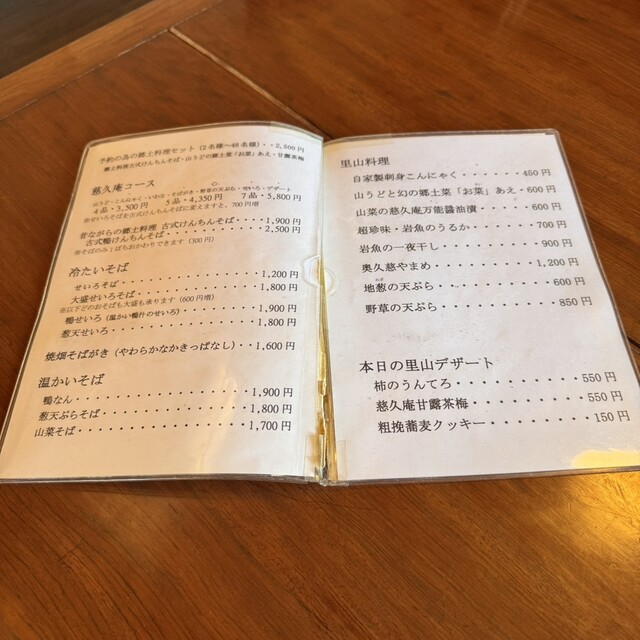 予約の為の郷土料理セット（2名様〜40名様）・・2,500円
郷土料理古式けんちんそば・山うどの郷土菜「お菜」あえ・甘露茶梅
慈久庵コース
山うど・こんにゃく・いわな・そばがき・野草の天ぷら・せいろ・デザート
4品・3,500円　5品・4,350円　7品・5,800円
※せいろそばを古式けんちんそばに変えますと、700円増
昔ながらの郷土料理 古式けんちんそば・・・・1,900円
古式鴨けんちんそば・・・・・2,500円
※そばのみ1ぱいおかわりできます（300円）
冷たいそば
せいろそば・・・・・・・・・・・・・・1,200円
大盛せいろそば・・・・・・・・・・・・1,800円
※以下どのおそばも大盛も承ります（600円増）
鴨せいろ（温かい鴨汁のせいろ）・・・・・1,900円
葱天せいろ・・・・・・・・・・・・・・1,800円
焼畑そばがき（やわらかなかきっぱなし）・・1,600円
温かいそば
鴨なん・・・・・・・・・・・・・・・・1,900円
葱天ぷらそば・・・・・・・・・・・・・1,800円
山菜そば・・・・・・・・・・・・・・・1,700円
里山料理
自家製刺身こんにゃく・・・・・・450円
山うどと幻の郷土菜「お菜」あえ・600円
山菜の慈久庵万能醤油漬・・・・・600円
超珍味・岩魚のうるか・・・・・・700円
岩魚の一夜干し・・・・・・・・・900円
奥久慈やまめ・・・・・・・・・1,200円
地葱の天ぷら・・・・・・・・・・600円
野草の天ぷら・・・・・・・・・・850円
本日の里山デザート
柿のうんてろ・・・・・・・・・・550円
慈久庵甘露茶梅・・・・・・・・・550円
粗挽蕎麦クッキー・・・・・・・・150円